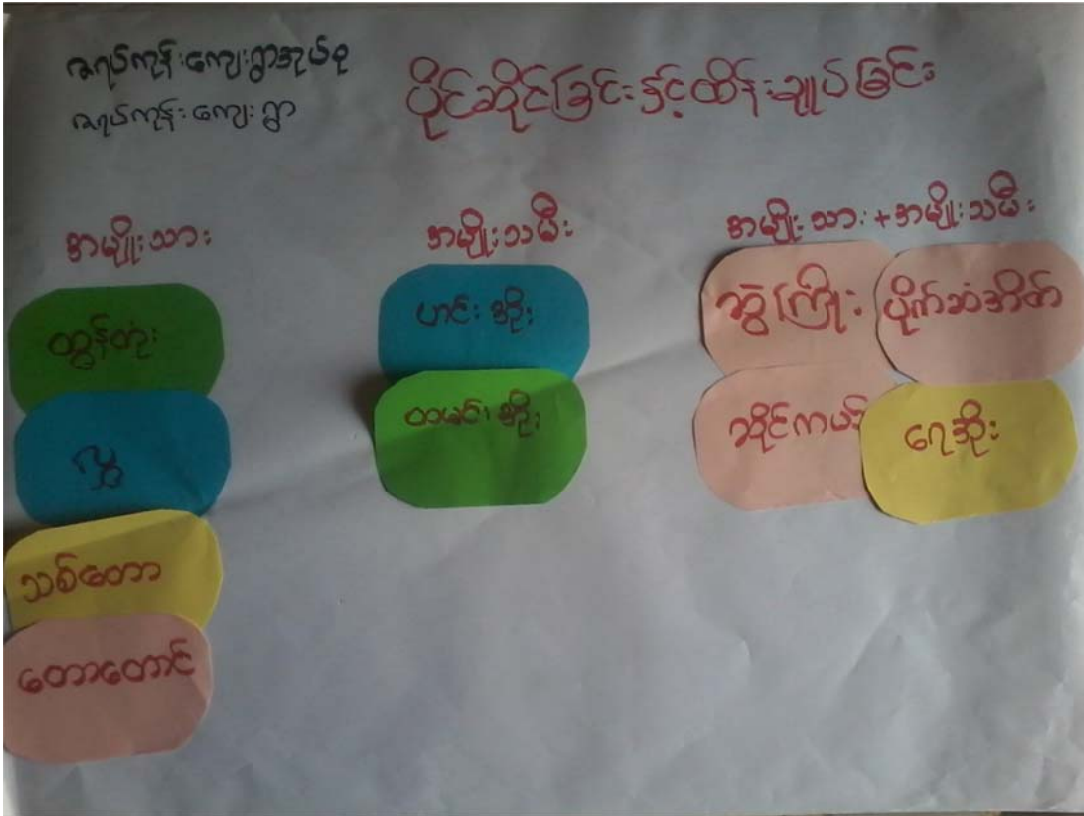 ဇရပ်ကုန်းကျေးရွာအုပ်စု
ဇရပ်ကုန်းကျေးရွာ
ပိုင်ဆိုင်ခြင်းနှင့်ထိန်းချုပ်ခြင်း
အမျိုးသား
ထွန်တုံး
လွှ
သစ်တော
တောတောင်
အမျိုးသမီး
ဟင်းအိုး
ထမင်းအိုး
အမျိုးသား+အမျိုးသမီး
ဆွဲကြိုး
ပိုက်ဆံအိတ်
ဆိုင်ကယ်
ရေအိုး